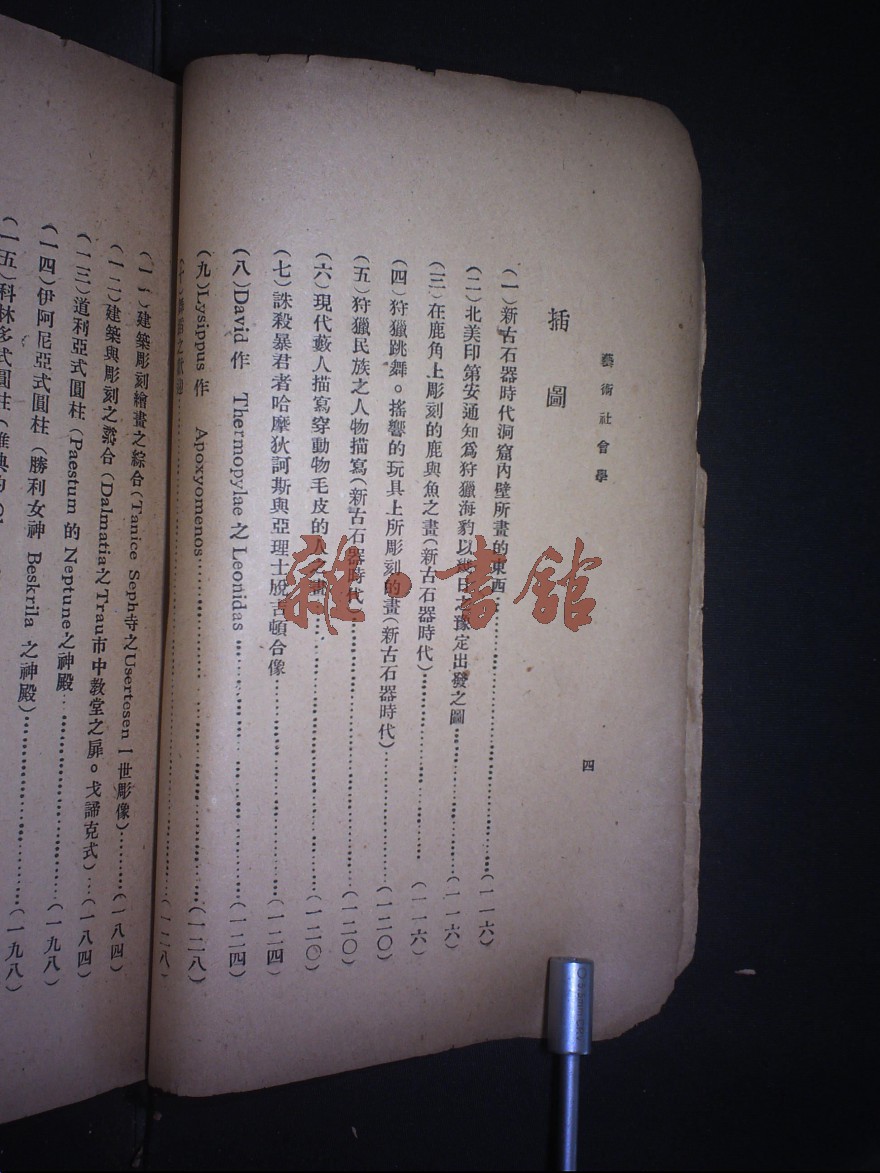 藝術社會學
四
插圖
(一)新古石器時代洞窟內壁所畫的東西……(一一六)
(二)北美印第安通知爲狩獵海豹以 之豫定出發之圖……(一一六)
(三)在鹿角上彫刻的鹿與魚之畫(新古石器時代)……(一一六)
(四)狩獵跳舞。搖響的玩具上所彫刻的畫(新古石器時代)……(一二〇)
(五)狩獵民族之人物描寫(新古石器時代)……(一二〇)
(六)現代藪人描寫穿動物毛皮的人之畫……(一二〇)
(七)誅殺暴君者哈摩狄訶斯與亞理士脫吉頓合像……(一二四)
(八)David作 Thermopylae之Leonidas……(一二四)
(九)Lysippus作 Apoxyomenos……(一二八)
(十) 之 ……(一二八)
(一一)建築彫刻繪畫之綜合(Tanice Seph寺之Usertesen I世彫像)……(一八四)
(一二)建築與彫刻之綜合(Dalmatia之Trau市中教堂之扉。戈諦克式)…(一八四)
(一三)道利亞式圓柱(Paestum的Neptune之神殿……(一九八)
(一四)伊阿尼亞式圓柱(勝利女神Beskrila之神殿)……(一九八)
(一五)科林多式圓柱(雅典的……(一九八)
雜·書館